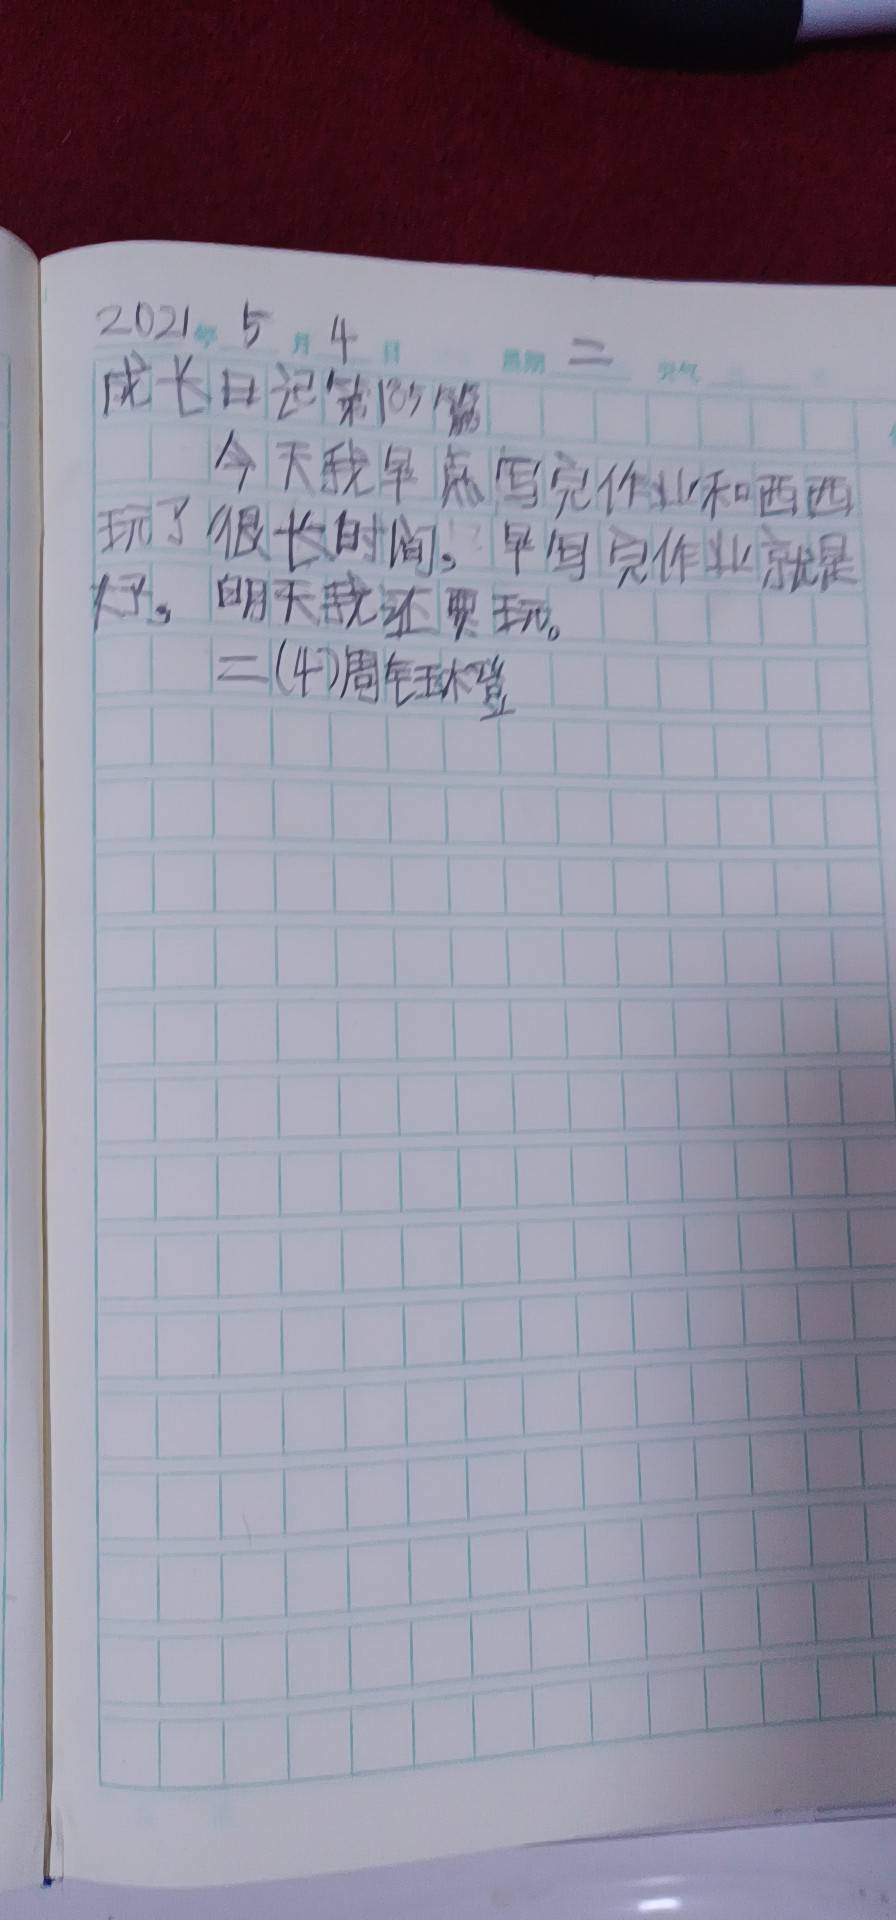 2021年 5 月 4 日 星期 二 天气
成长日记第135篇
今天我早点写完作业和西西
玩了很长时间。早写完作业就是
好。明天我还要玩。
二(4)周钰